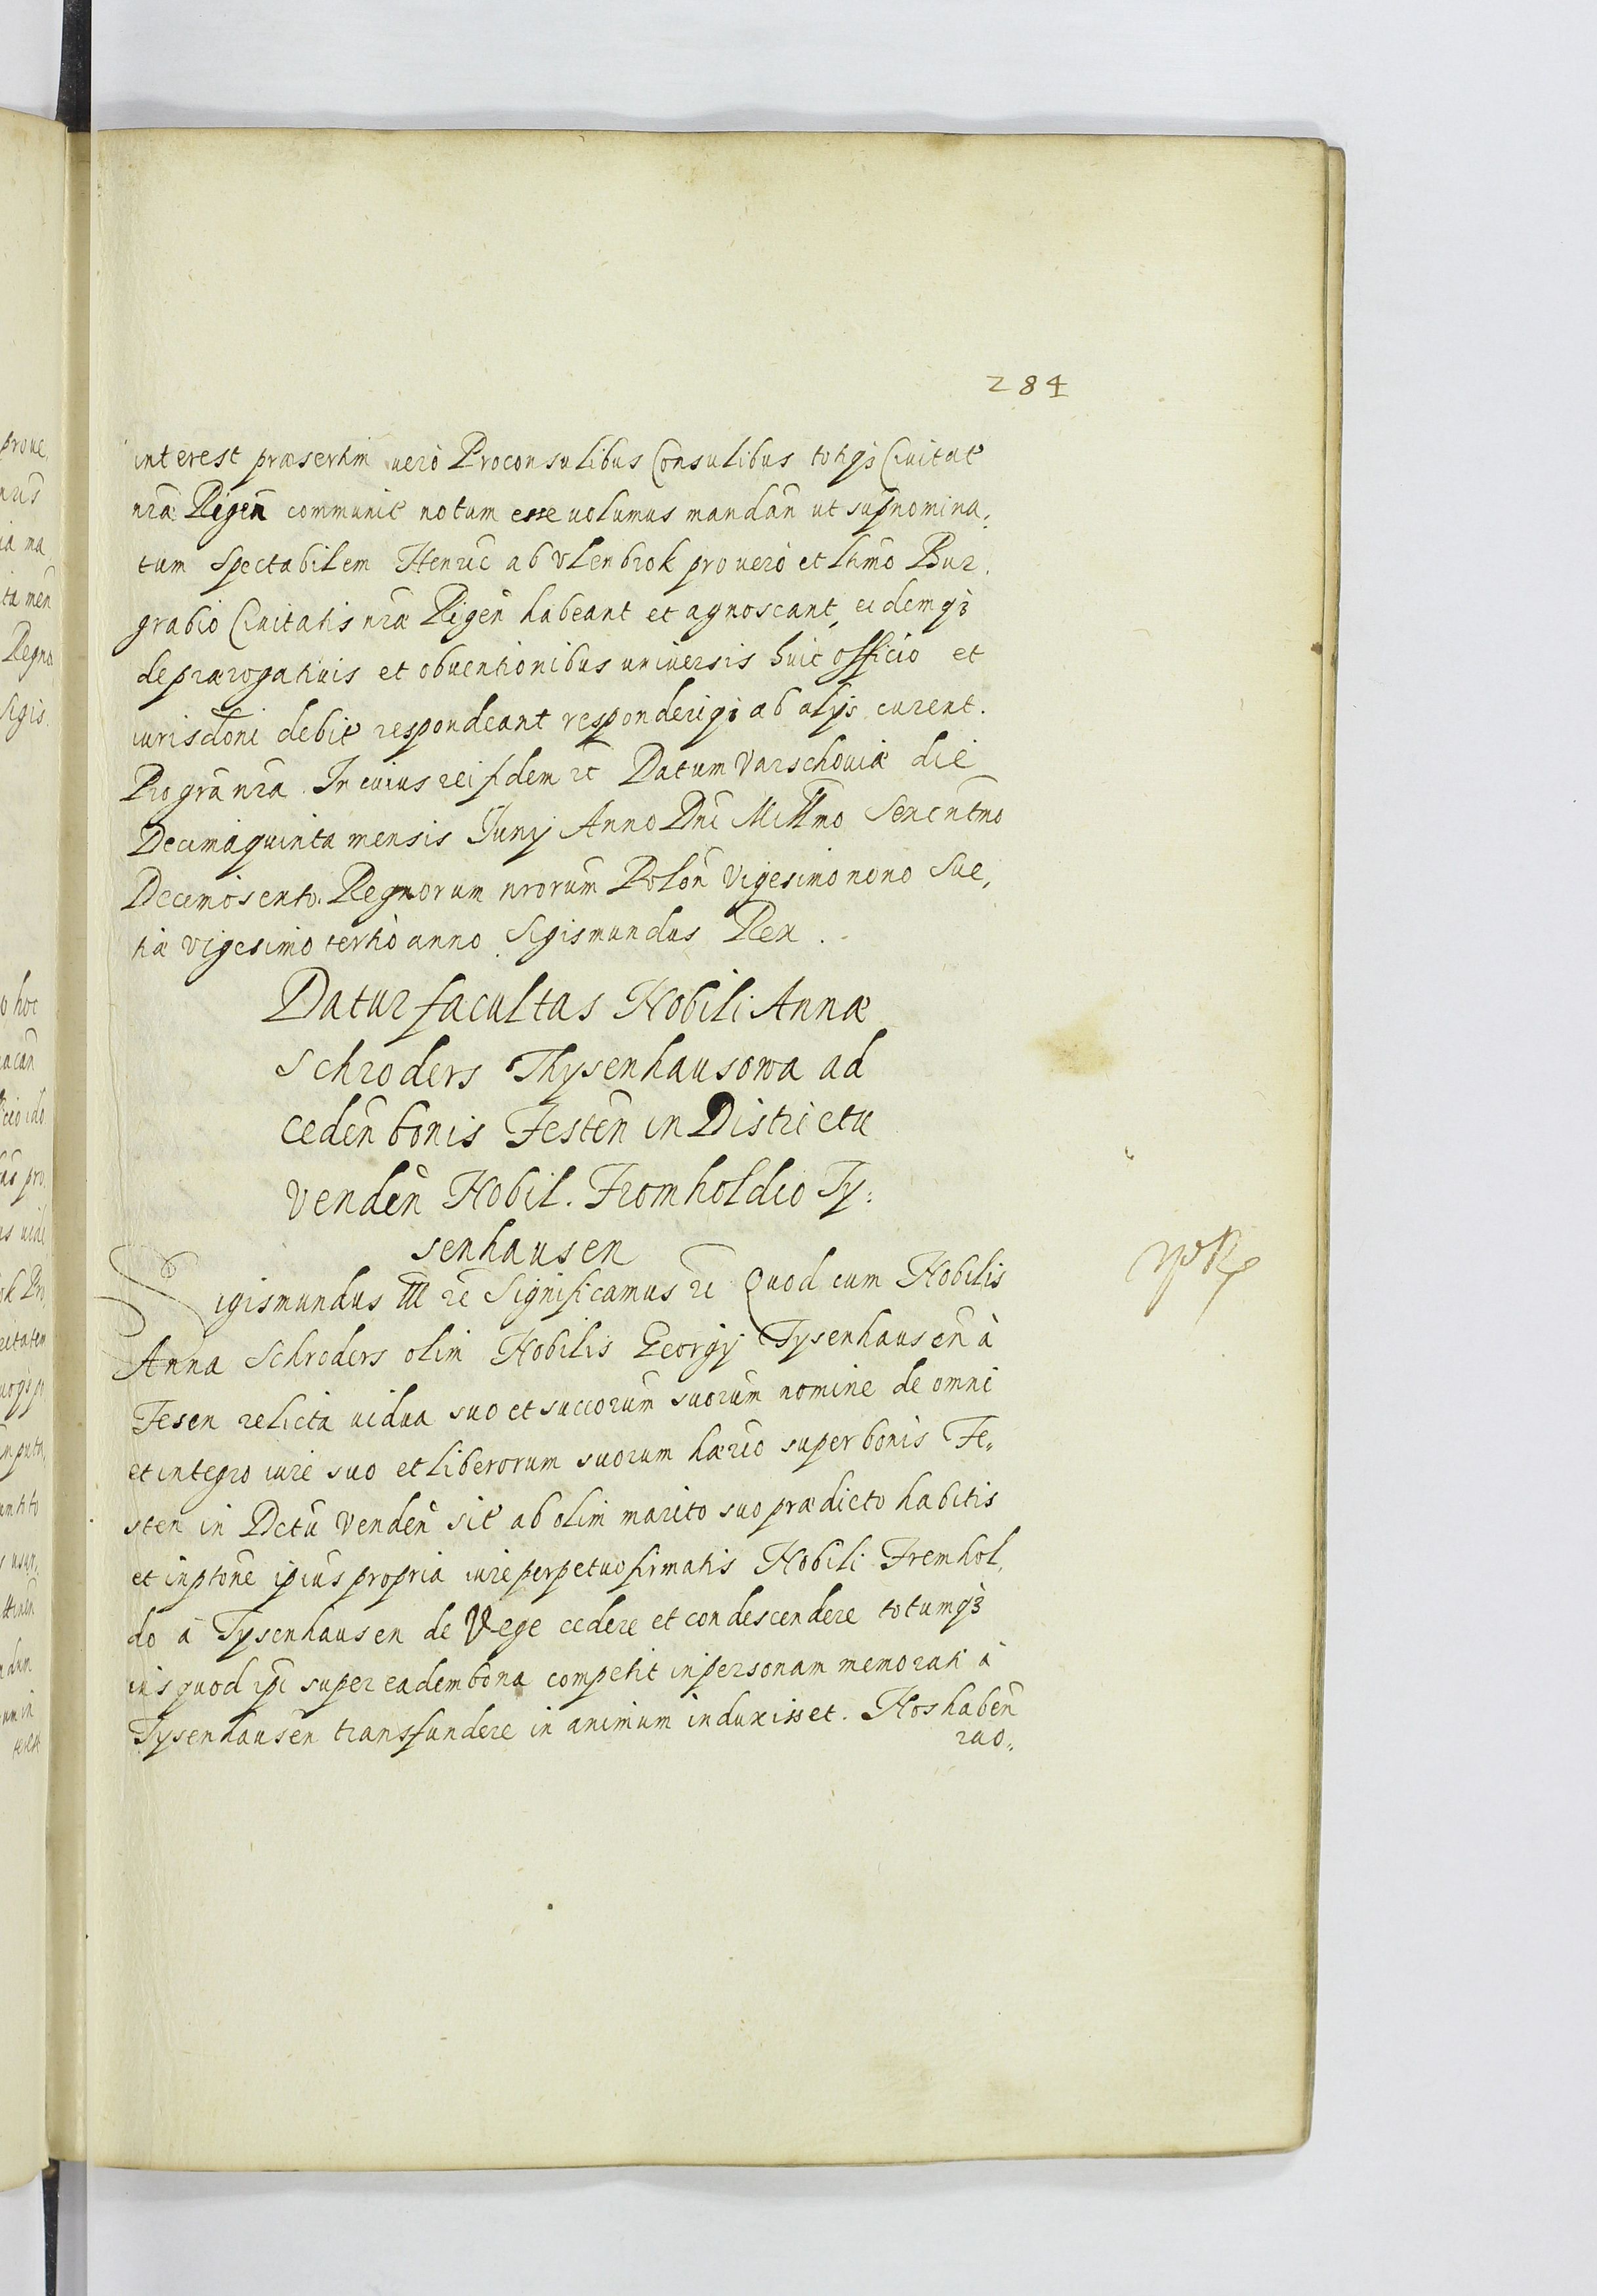 284
interest præsertim uerò Proconsulibus Consulibus totiqȝ Ciuitat͠
nr̃a Rigen̄ communit͠ notum esse uolumus mandan̄ ut sup̄nomina,
tum Spectabilem Henric̄ ab Vlenbrok pro uero et lt̄imo Bur,
grabio Ciuitatis nr̃æ Rigen̄ habeant et agnoscant, eidemqȝ
de prærogatiuis et obuentionibus uniuersis huic officio et
iurisd̄oni debit͠ respondeant responderiqȝ ab alijs curent.
Pro gr̄a nr̃a. In cuius rei fidem etc̄ Datum Varschouiæ die
Decimaquinta mensis Junij Anno Dn̄i Mill̄mo Sexcnt̄mo
Decimosexto. Regnorum nrorum̄ Polon̄ Vigesimo nono Sue,
tiæ Vigesimo tertiò anno. Sigismundus Rex.
Datur facultas Nobili Annæ
Schroders Thysenhausowa ad
Ceden̄ bonis Festen̄ in Districtu
Venden̄ Nobil. Fromholdio Ty:
senhausen
Sigismundus III etc̄ Significamus etc̄ Quod cum Nobilis
Anna Schroders olim Nobilis Georgij Tysenhausen̄ à
Fesen relicta uidua suo et succorum̄ suorum̄ nomine de omni
et integro iure suo et liberorum suorum hærio super bonis Fe,
sten in Dctū Venden̄ sit͠ ab olim marito suo prædicto habitis
et in pt̄one ip̄ius propria iure perpetuo firmatis Nobili Fremhol,
do à Tysenhausen de Vege cedere et condescendere totumqȝ
ius quod ip̄i super eadem bona competit in personam memorati à
Tysenhausen̄ transfundere in animum induxisset. Nos haben̄
rao,